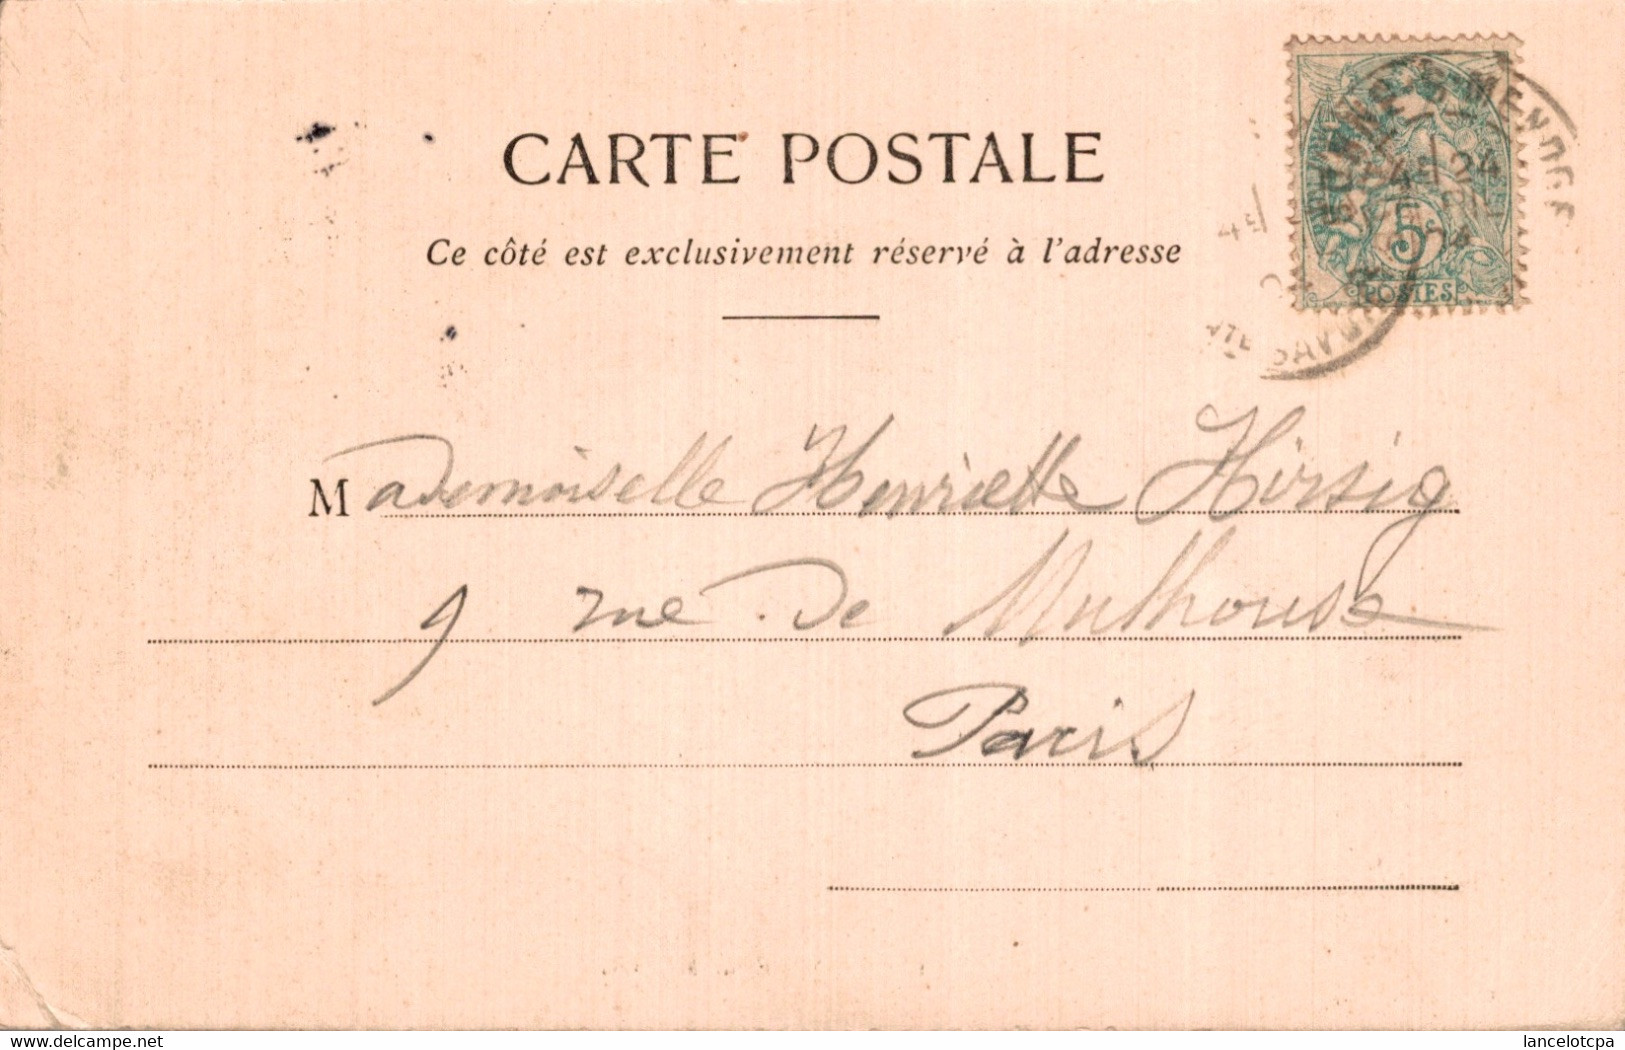 CARTE POSTALE
Ce côté est exclusivement réservé à l'adresse
4E 24
5
POSTES
SAVOIE
Mademoiselle Henriette Hirsig
9 rue de Mulhouse
Paris
delcampe.net
lancelotcpa